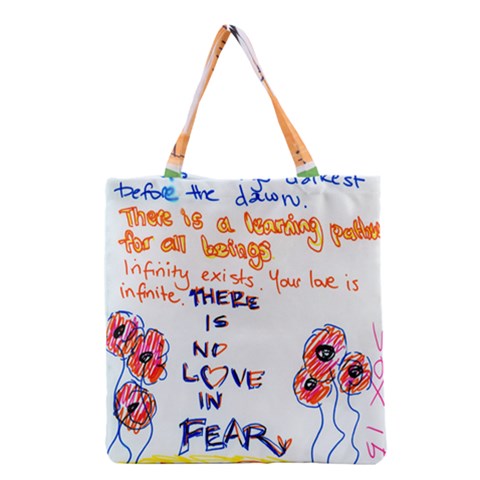 darkest
before the dawn.
There is a learning
for all beings
Infinity exists. Your love is
infinite.
THERE
IS
NO
LOVE
IN
FEAR
XOX